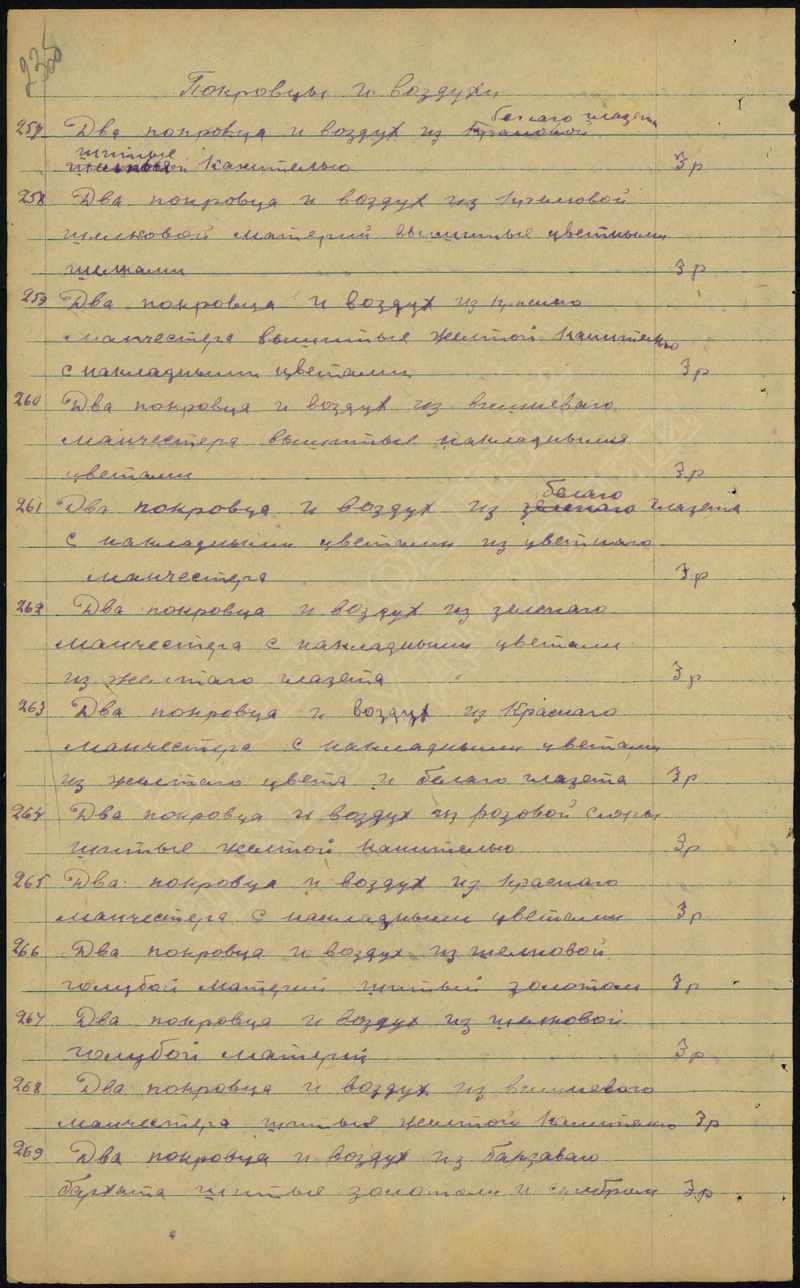 Покровцы и воздухи
белаго глазета
257 Два покровца и воздух из
шитые
канителью 3 р
258 Два покровца и воздух из кремовой
шелковой материй вышитые цветными
шелками 3 р
259 Два покровца и воздух из
манчестера вышитые желтой канителью
с накладными цветами 3 р
260 Два покровца и воздух из вишневаго
манчестера вышитые накладными
цветами 3 р
белаго
261 Два покровца и воздух из зеленаго глазета
с накладными цветами из цветнаго
манчестера 3 р
262 Два покровца и воздух из зеленаго
манчестера с накладными цветами
из желтаго глазета 3 р
263 Два покровца и воздух из Краснаго
манчестера с накладными цветами
из желтаго цвета и белаго глазета 3 р
264 Два покровца и воздух из розовой
шитые желтой канителью 3 р
265 Два покровца и воздух из Краснаго
манчестера с накладными цветами 3 р
266 Два покровца и воздух из шелковой
голубой материй шитый золотом 3 р
267 Два покровца и воздух из шелковой
голубой материй 3 р
268 Два покровца и воздух из вишневого
манчестера шитые желтой канителью 3 р
269 Два покровца и воздух из
бархата шитые золотом и 3 р